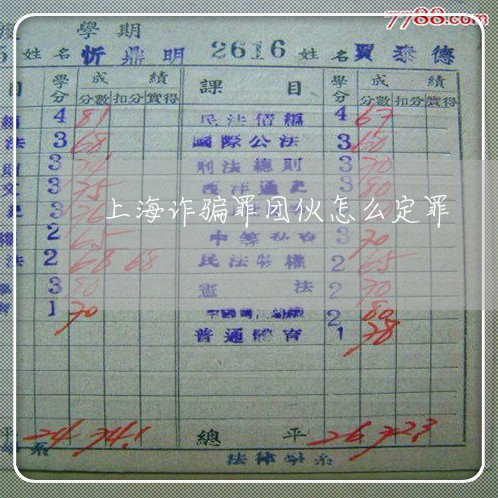 7788.com
學期
姓名 忻鼎明 2616 姓名 賈泰德
目 學分 成績 課目 學分 成績
分數 扣分 實得 分數 扣分 實得
4 81 民法債編 4 67
法 3 68 國際公法 3 60
3 刑法總則 3 70
3 75 西洋通史 3 80
上海诈骗罪团伙怎么定罪
2 65 3 70
法 2 68 68 民法物權 2 65
3 80 憲法 2 70
1 70 2 80
普通體育 1 78
平 24 74.1 總平 26 72.3
系 法律學系